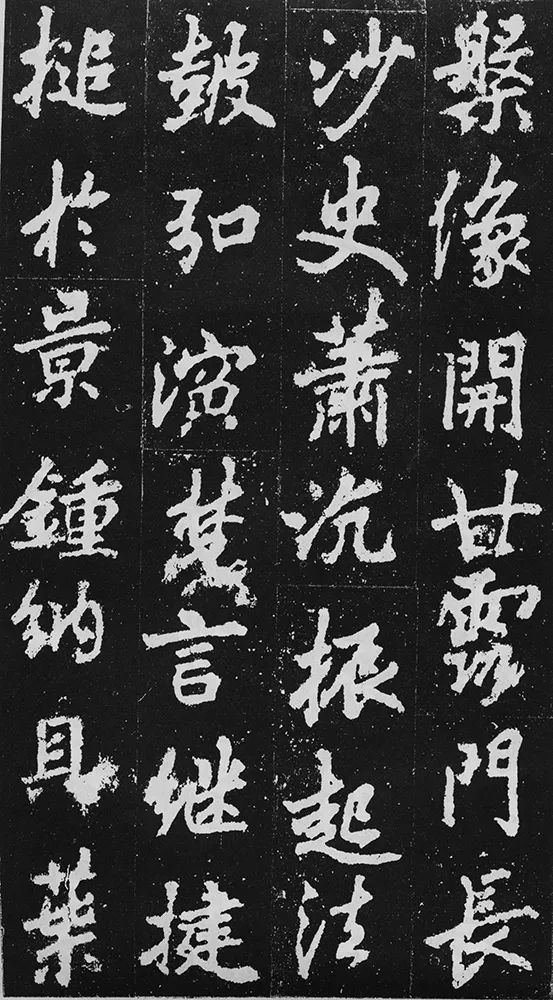 槃像開甘露門長
沙史蕭沆振起法
皷弘演梵言継揵
搥於景鍾納貝葉